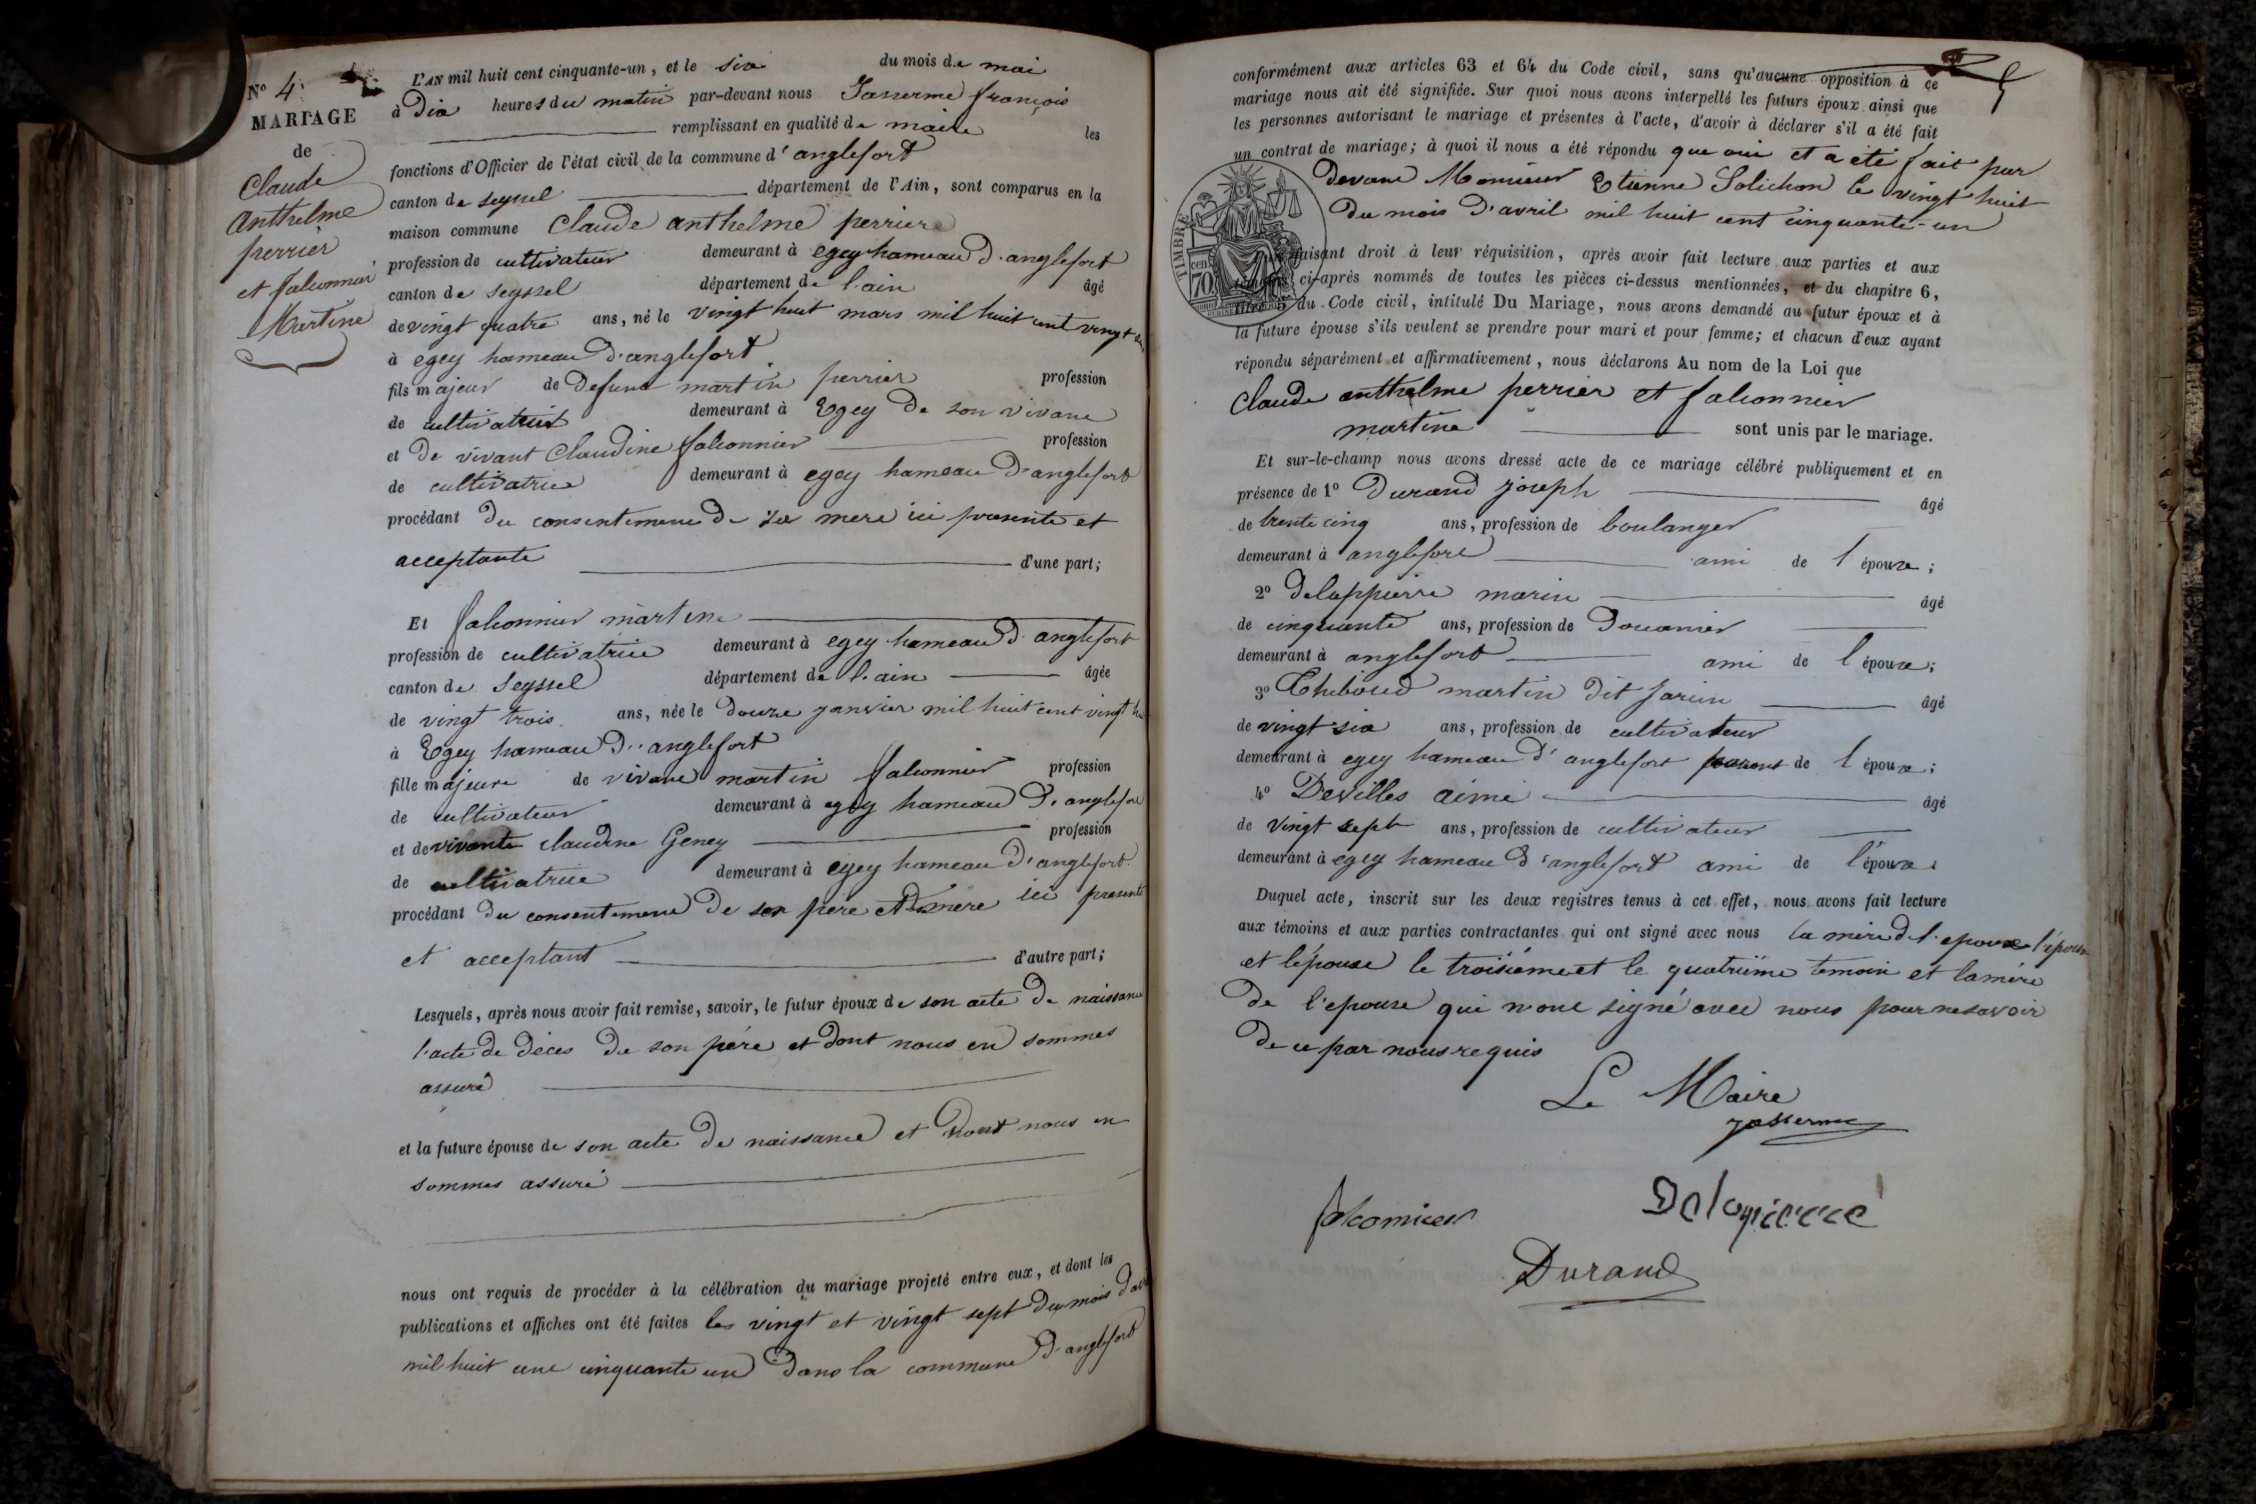 N° 4.
MARIAGE
de
Claude
Anthelme
perrier
et falconnier
Martine
L'AN mil huit cent cinquante-un, et le six du mois de mai
à Dix heures du matin par-devant nous Jasserme françois
remplissant en qualité de maire les
fonctions d'Officier de l'état civil de la commune d'anglefort
canton de seyssel département de l'Ain, sont comparus en la
maison commune Claude anthelme perrier
profession de cultivateur demeurant à egey hameau d'anglefort
canton de Seyssel département de l'ain âgé
de vingt quatre ans, né le vingt huit mars mil huit cent vingt
à egey hameau d'anglefort
fils majeur de defunt martin perrier profession
de cultivateur demeurant à Egey de son vivant
et de vivant Claudine falconnier profession
de cultivatrice demeurant à egey hameau d'anglefort
procédant du consentement de sa mere ici presente et
acceptante d'une part;
Et falconnier martine
profession de cultivatrice demeurant à egey hameau d'anglefort
canton de Seyssel département de l'ain âgée
de vingt trois ans, née le douze janvier mil huit cent vingt
à Egey hameau d'anglefort
fille majeure de vivant martin falconnier profession
de cultivateur demeurant à egey hameau d'anglefort
et de vivante claudine Geney profession
de cultivatrice demeurant à egey hameau d'anglefort
procédant du consentement de son père et mère ici present
et acceptant d'autre part;
Lesquels, après nous avoir fait remise, savoir, le futur époux de son acte de naissance
l'acte de déces de son père et dont nous en sommes
assuré
et la future épouse de son acte de naissance et dont nous en
sommes assuré
nous ont requis de procéder à la célébration du mariage projeté entre eux, et dont les
publications et affiches ont été faites les vingt et vingt sept du mois d'av
mil huit cent cinquante un dans la commune d'anglefort
5
conformément aux articles 63 et 64 du Code civil, sans qu'aucune opposition à ce
mariage nous ait été signifiée. Sur quoi nous avons interpellé les futurs époux ainsi que
les personnes autorisant le mariage et présentes à l'acte, d'avoir à déclarer s'il a été fait
un contrat de mariage; à quoi il nous a été répondu que oui et a été fait par
devant Monsieur Etienne Solichon le vingt huit
du mois d'avril mil huit cent cinquante-un
TIMBRE
70
faisant droit à leur réquisition, après avoir fait lecture aux parties et aux
ci-après nommés de toutes les pièces ci-dessus mentionnées, et du chapitre 6,
titre 5 du Code civil, intitulé Du Mariage, nous avons demandé au futur époux et à
la future épouse s'ils veulent se prendre pour mari et pour femme; et chacun d'eux ayant
répondu séparément et affirmativement, nous déclarons Au nom de la Loi que
Claude anthelme perrier et falconnier
martine sont unis par le mariage.
Et sur-le-champ nous avons dressé acte de ce mariage célébré publiquement et en
présence de 1° Durand joseph âgé
de trente cinq ans, profession de boulanger
demeurant à anglefort ami de l'épouse;
2° Delappierre marin âgé
de cinquante ans, profession de Douanier
demeurant à anglefort ami de l'épouse;
3° Thiboud martin dit Jarin âgé
de vingt six ans, profession de cultivateur
demeurant à egey hameau d'anglefort parent de l'épouse;
4° Devilles aimé âgé
de vingt sept ans, profession de cultivateur
demeurant à egey hameau d'anglefort ami de l'épouse.
Duquel acte, inscrit sur les deux registres tenus à cet effet, nous avons fait lecture
aux témoins et aux parties contractantes qui ont signé avec nous la mère de l'epoux l'époux
et l'épouse le troisième et le quatrième temoin et la mére
de l'epouse qui n'ont signé avec nous pour ne savoir
de ce par nous requis
Le Maire
Jasserme
falconier
Delapierre
Durand